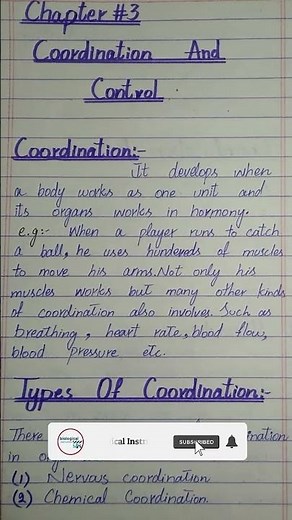 Chapter #3
Coordination And
Control
Coordination:-
It develops when
a body works as one unit and
its organs works in hormony.
e.g:- When a player runs to catch
a ball, he uses hundereds of muscles
to move his arms. Not only his
muscles works but many other kinds
of coordination also involves. Such as
breathing, heart rate, blood flow,
blood pressure etc.
Types Of Coordination:-
There
in
biological
SUBSCRIBED
(1) Nervous coordination
(2) Chemical Coordination.